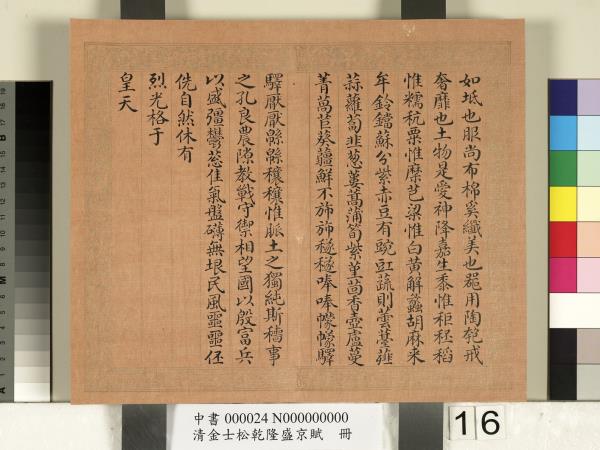 如坻也服尚布棉奚纖美也器用陶匏戒
奢靡也土物是愛神降嘉生黍惟秬秠稻
惟糯秔粟惟穈芑粱惟白黃解蠡胡麻來
牟鈴鐺蘇分紫赤豆有豌豇蔬則蕓薹薤
蒜蘿蔔韭葱蔞蒿蒲筍紫堇茴香壺盧蔓
菁萵苣葵蘁鮮不斾斾穟穟唪唪幪幪驛
驛厭厭緜緜穰穰惟脈土之獨純斯穡事
之孔良農隙教戰守禦相望國以殷富兵
以盛彊鬱蔥佳氣盤礴無垠民風噩噩伾
侁自然休有
烈光格于
皇天
中書 000024 N000000000
清金士松乾隆盛京賦 冊
16